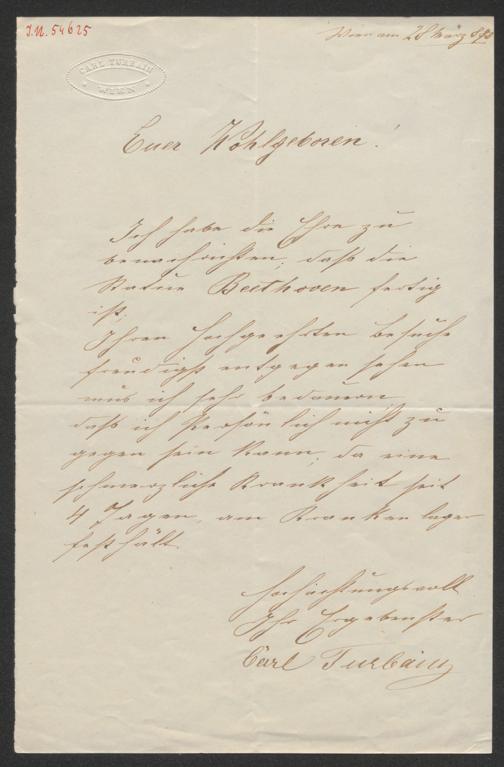 I.N. 54625
Wien am 28 März
CARL TURBAIN
WIEN
Euer Wohlgeboren!
Ich habe die Ehre zu
benachrichten, daß die
Statue Beethoven fertig
ist.
Ihren hochgeehrten Besuche
freudigst entgegen sehen
mus ich sehr bedauern,
daß ich Persönlich nicht zu
gegen sein kann, da eine
schmerzliche Krankheit seit
4 Tagen, am Krankenlager
festhält.
Hochachtungsvoll
Ihr Ergebenster
Carl Turbain